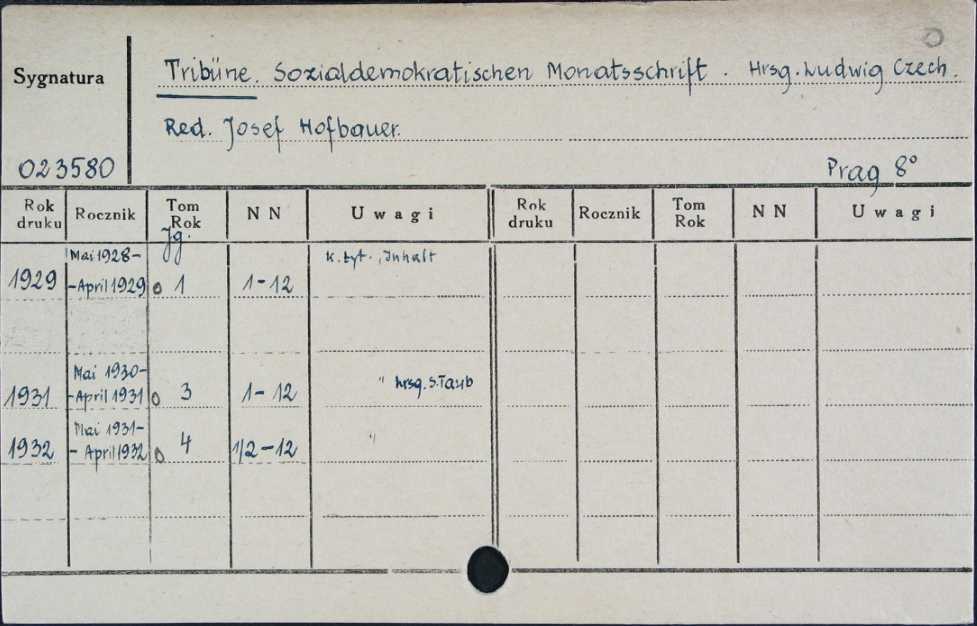 Sygnatura
Tribüne. Sozialdemokratischen Monatsschrift. Hrsg. Ludwig Czech.
Red. Josef Hofbauer.
023580
Prag 8°
Rok druku Rocznik Tom Rok N N Uwagi Rok druku Rocznik Tom Rok N N Uwagi
Jg.
Mai 1928- k. tyt., Inhalt
1929 -April 1929 o 1 1-12
Mai 1930- " hrsg. S. Taub
1931 -April 1931 o 3 1-12
Mai 1931- "
1932 - April 1932 o 4 1/2-12